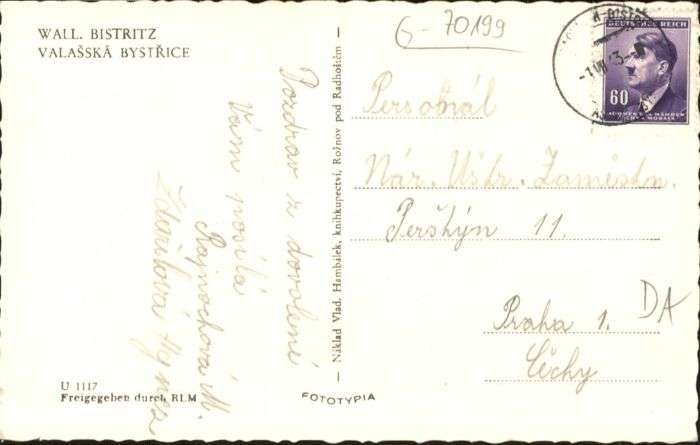 WALL. BISTRITZ
VALAŠSKÁ BYSTŘICE
G-70199
Pozdrav z dovolené
Vám posílá
Rajnochová M.
Zdařilová Agnes
U 1117
Freigegeben durch RLM
Náklad Vlad. Hambálek, knihkupectví, Rožnov pod Radhoštěm
FOTOTYPIA
DEUTSCHES REICH
60
BÖHMEN UND MÄHREN
Personál
Nár. Ústr. Zaměstn.
Perštýn 11.
Praha 1.
Čechy
DA